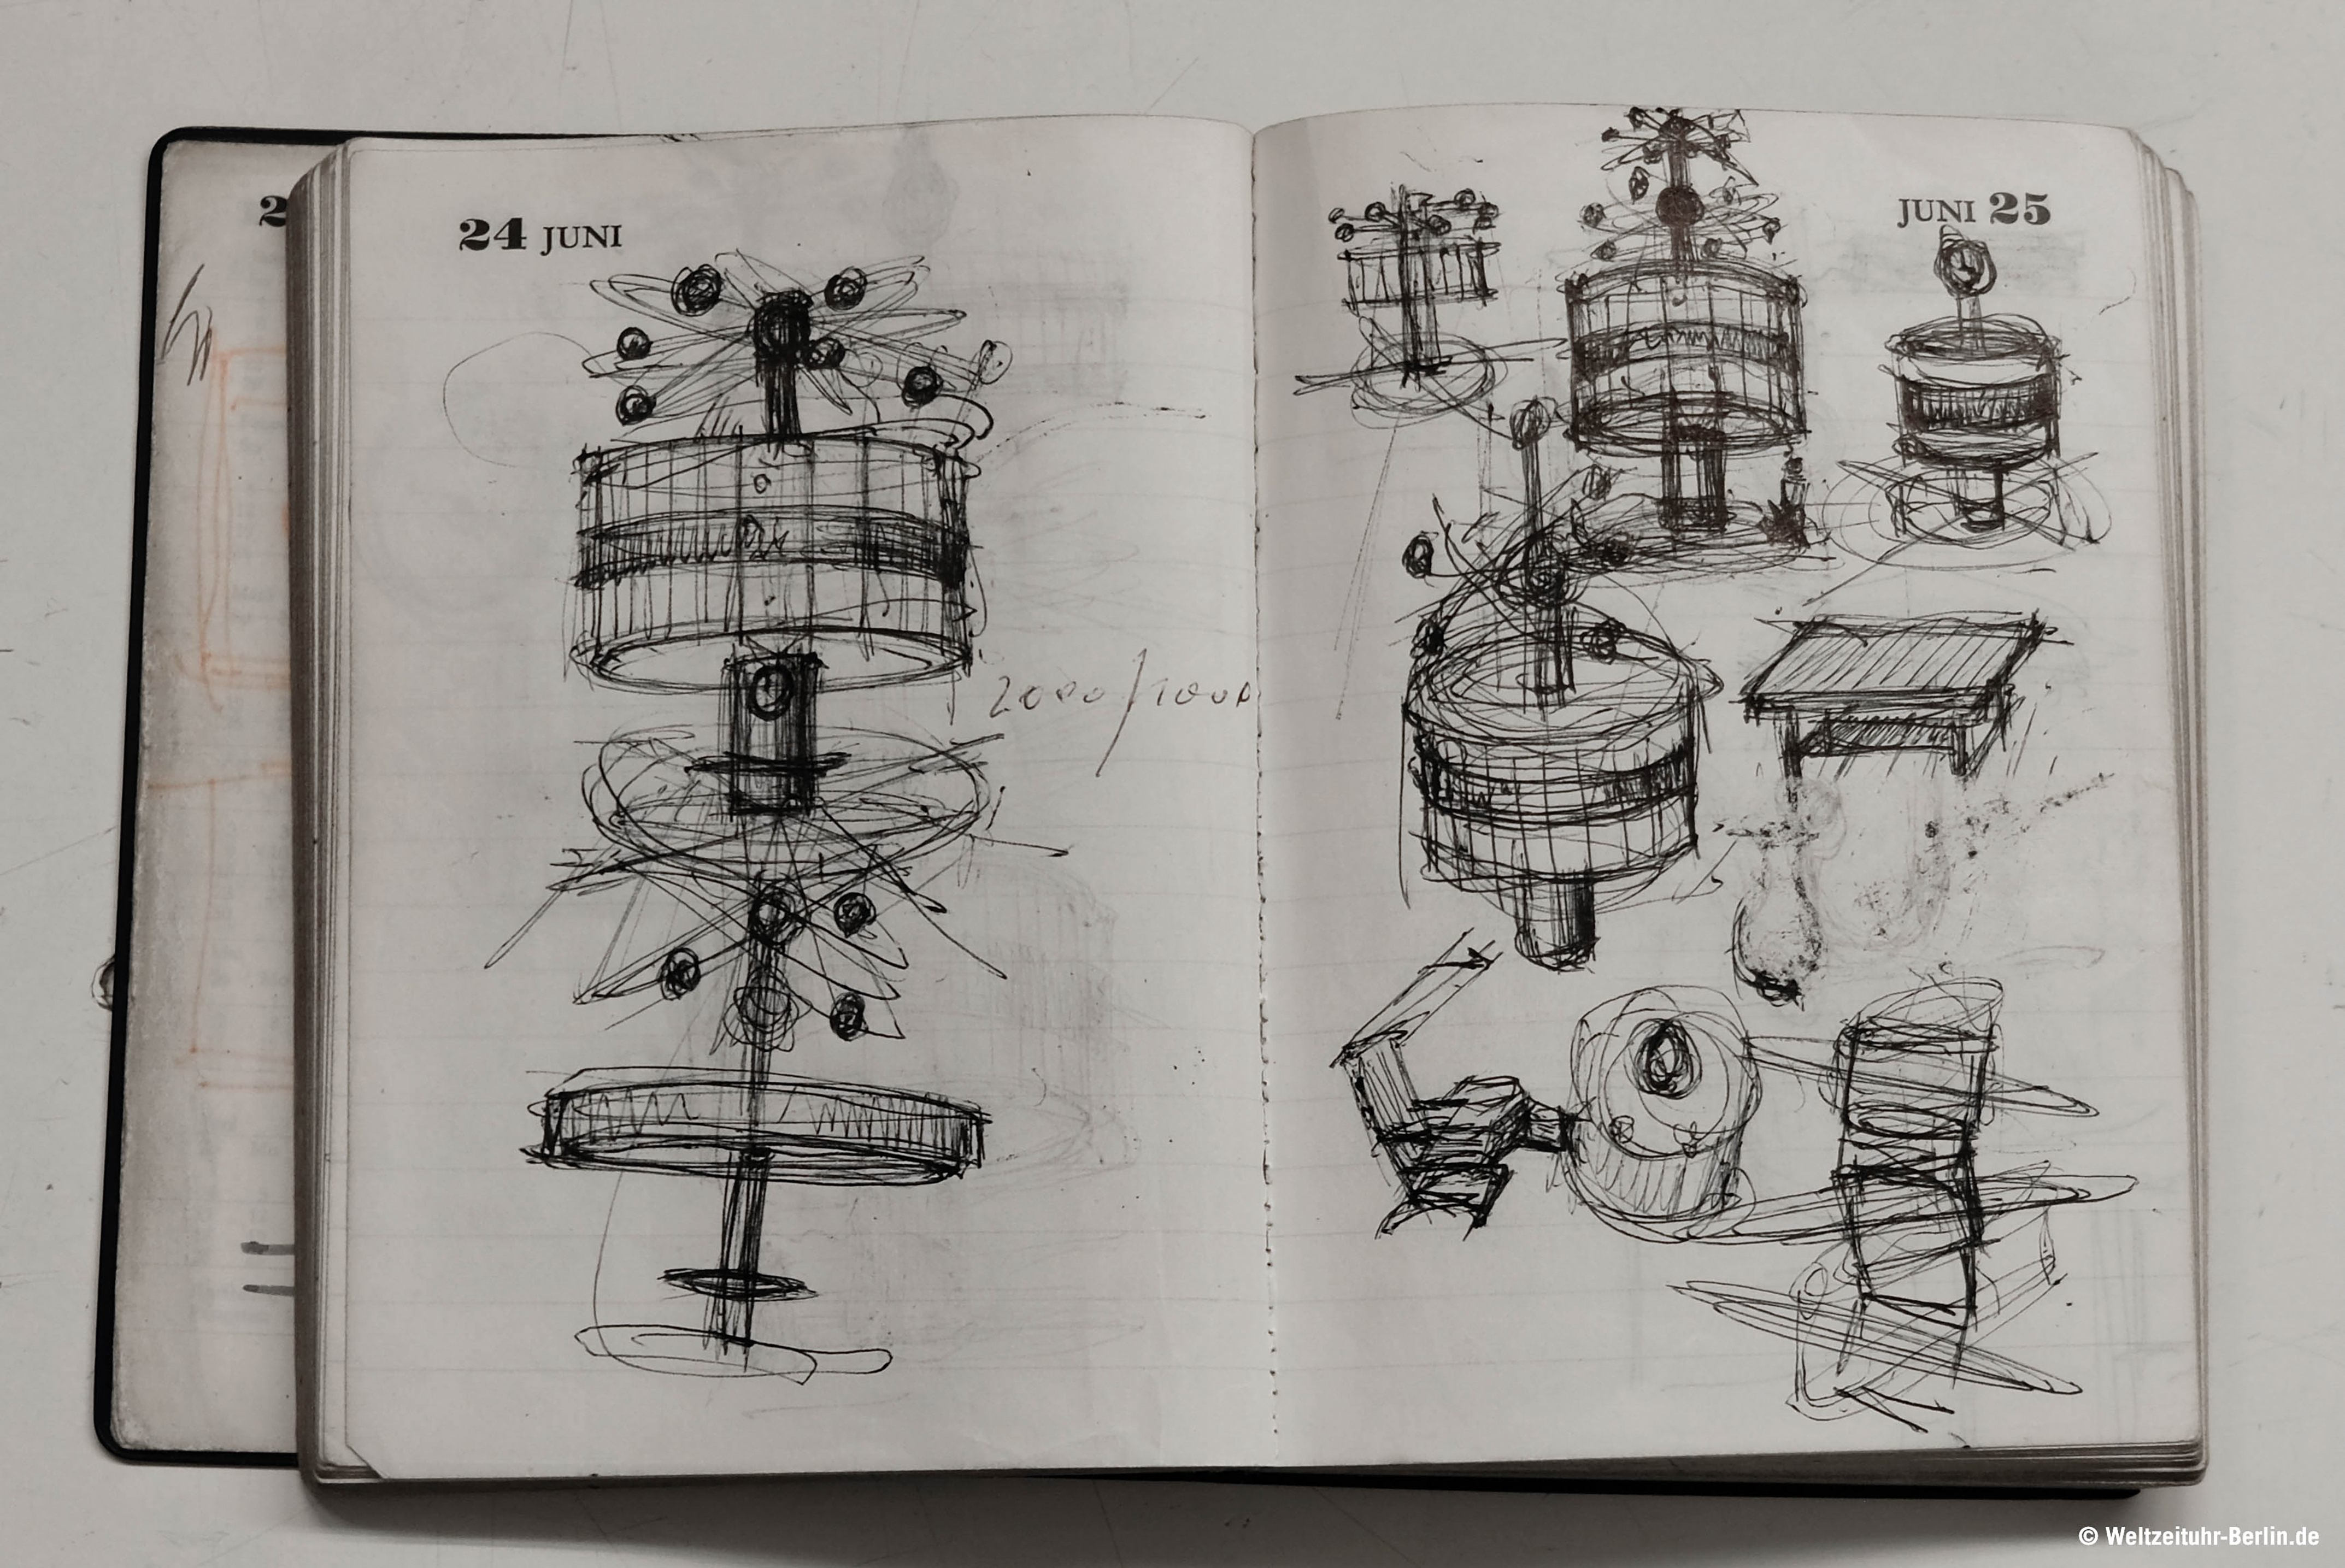 2
24 JUNI
JUNI 25
2000/1000
© Weltzeituhr-Berlin.de